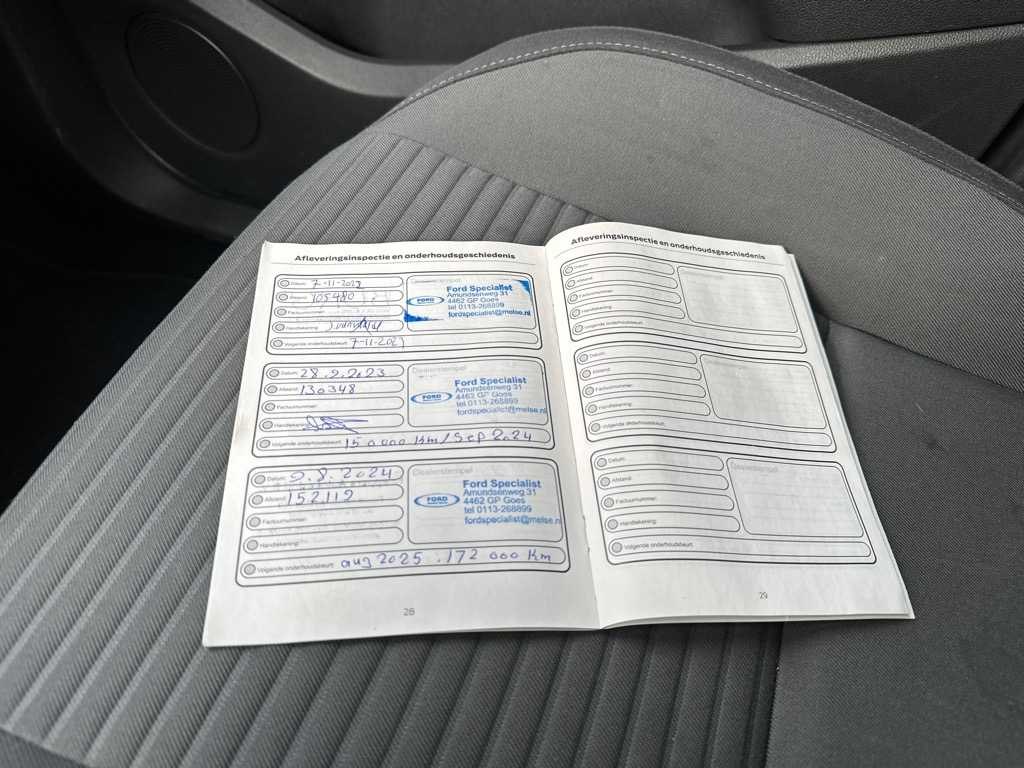 Afleveringsinspectie en onderhoudsgeschiedenis
Datum:
Afstand: 105980
Factuurnummer:
Handtekening:
Volgende onderhoudsbeurt:
Ford Specialist
Amundsenweg 31
4462 GP Goes
tel 0113-268899
fordspecialist@melse.nl
FORD
Datum: 28.9.2023
Afstand: 130348
Factuurnummer:
Handtekening:
Volgende onderhoudsbeurt: 150000 Km/Sep 2024
Dealerstempel
Ford Specialist
Amundsenweg 31
4462 GP Goes
tel 0113-268899
fordspecialist@melse.nl
FORD
Datum: 9.8.2024
Afstand: 152112
Factuurnummer:
Handtekening:
Volgende onderhoudsbeurt: aug 2025 . 172 000 Km
Dealerstempel
Ford Specialist
Amundsenweg 31
4462 GP Goes
tel 0113-268899
fordspecialist@melse.nl
FORD
28
Afleveringsinspectie en onderhoudsgeschiedenis
Datum:
Afstand:
Factuurnummer:
Handtekening:
Volgende onderhoudsbeurt:
Dealerstempel
Datum:
Afstand:
Factuurnummer:
Handtekening:
Volgende onderhoudsbeurt:
Dealerstempel
Datum:
Afstand:
Factuurnummer:
Handtekening:
Volgende onderhoudsbeurt:
Dealerstempel
29